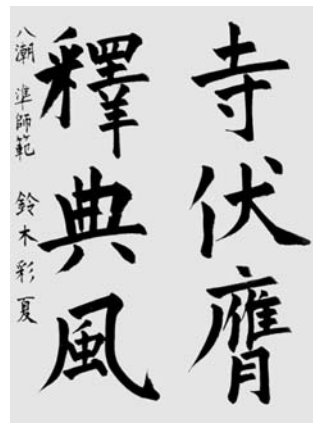 寺伏膺
釋典風
八潮 準師範 鈴木彩夏